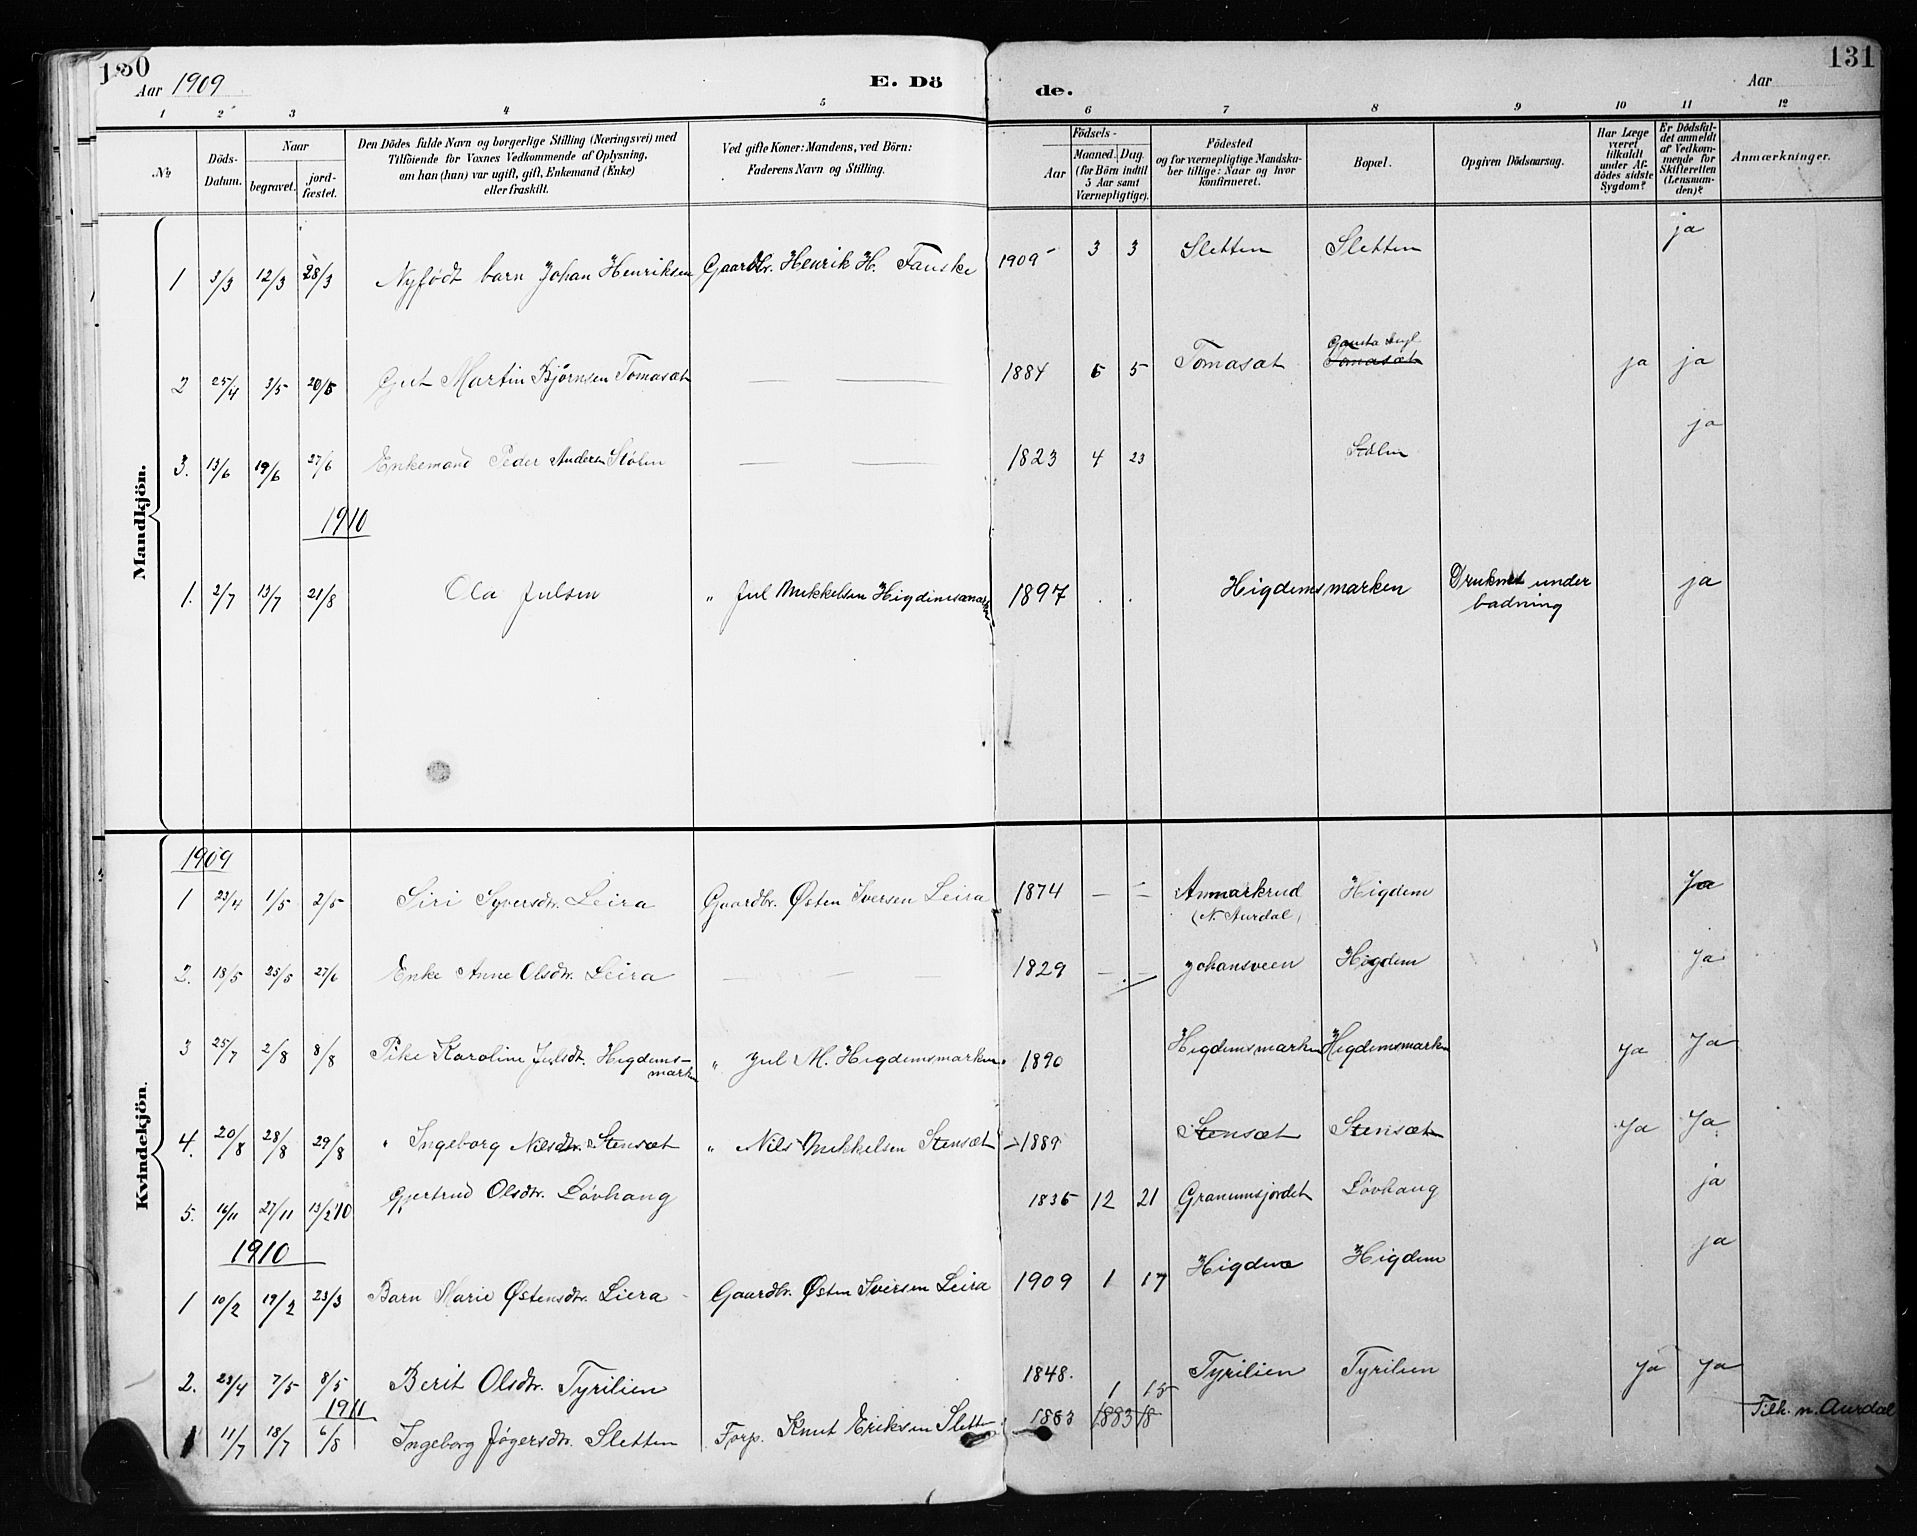 130
131
Aar 1909
E. Dö
de.
Aar
1 2 3 4 5 6 7 8 9 10 11 12
№
Döds-Datum.
Naar
begravet.
jord-fæstet.
Den Dödes fulde Navn og borgerlige Stilling (Næringsvei) med
Tilföiende for Voxnes Vedkommende af Oplysning,
om han (hun) var ugift, gift, Enkemand (Enke)
eller fraskilt.
Ved gifte Koner: Mandens, ved Börn:
Faderens Navn og Stilling.
Födsels-
Aar
Maaned. Dag.
(for Börn indtil
5 Aar samt
Værnepligtige).
Födested
og for værnepligtige Mandska-
ber tillige: Naar og hvor
konfirmeret.
Bopæl.
Opgiven Dödsaarsag.
Har Læge
været
tilkaldt
under Af-
dödes sidste
Sygdom?
Er Dödsfal-
det anmeldt
af Vedkom-
mende for
Skifteretten
(Lensman-
den)?
Anmærkninger.
Mandkjön.
1 3/3 12/3 28/3 Nyfødt barn Johan Henriksen Gaardbr. Henrik H. Fauske 1909 3 3 Sletten Sletten ja
2 25/4 3/5 20/5 Gut Martin Bjørnsen Tomasæt — — 1884 5 5 Tomasæt Tomasæt ja ja
3. 13/6 19/6 27/6 Enkemand Peder Anders Stølen — — 1823 4 23 Stølen ja
1910
1. 2/7 13/7 21/8 Ola Julsen " Jul Mikkelsen Higdemsmarken 1897 . . Higdemsmarken Druknet under ja
badning
Kvindekjön.
1909
1 23/4 1/5 2/5 Siri Syversdr. Leira Gaardbr. Østen Iversen Leira 1874 — — Anmarkrud Higdem Ja
(N. Aurdal)
2. 18/5 25/5 27/6 Enke Anne Olsdtr. Leira — — — 1829 — — Johansveen Higdem Ja
3 25/7 2/8 8/8 Pike Karoline Julsdt. Higdems- " Jul M. Higdemsmarken. 1890 Higdemsmarken Higdemsmarken Ja Ja
marken
4. 20/8 28/8 29/8 " Ingeborg Nilsdtr. Stensæt " Nils Mikkelsen Stensæt 1889 Stensæt Stensæt Ja Ja
5. 16/11 27/11 13/2 10 Gjertrud Olsdtr. Løvhaug 1836 12 21 Granumsjordet Løvhaug ja
1910
1 10/2 19/2 23/3 Barn Marie Østensdtr. Liera Gaardbr. Østen Iversen Leira 1909 1 17 Higdem Higdem ja
2. 23/4 7/5 8/5 Berit Olsdtr. Tyrilien 1848. 1 15 Tyrilien Tyrilien Ja Ja
1911
1 11/7 18/7 6/8 Ingeborg Jøgersdtr. Sletten Forp. Knut Eriksen Sletten 1883 18 Tilh. n. Aurdal